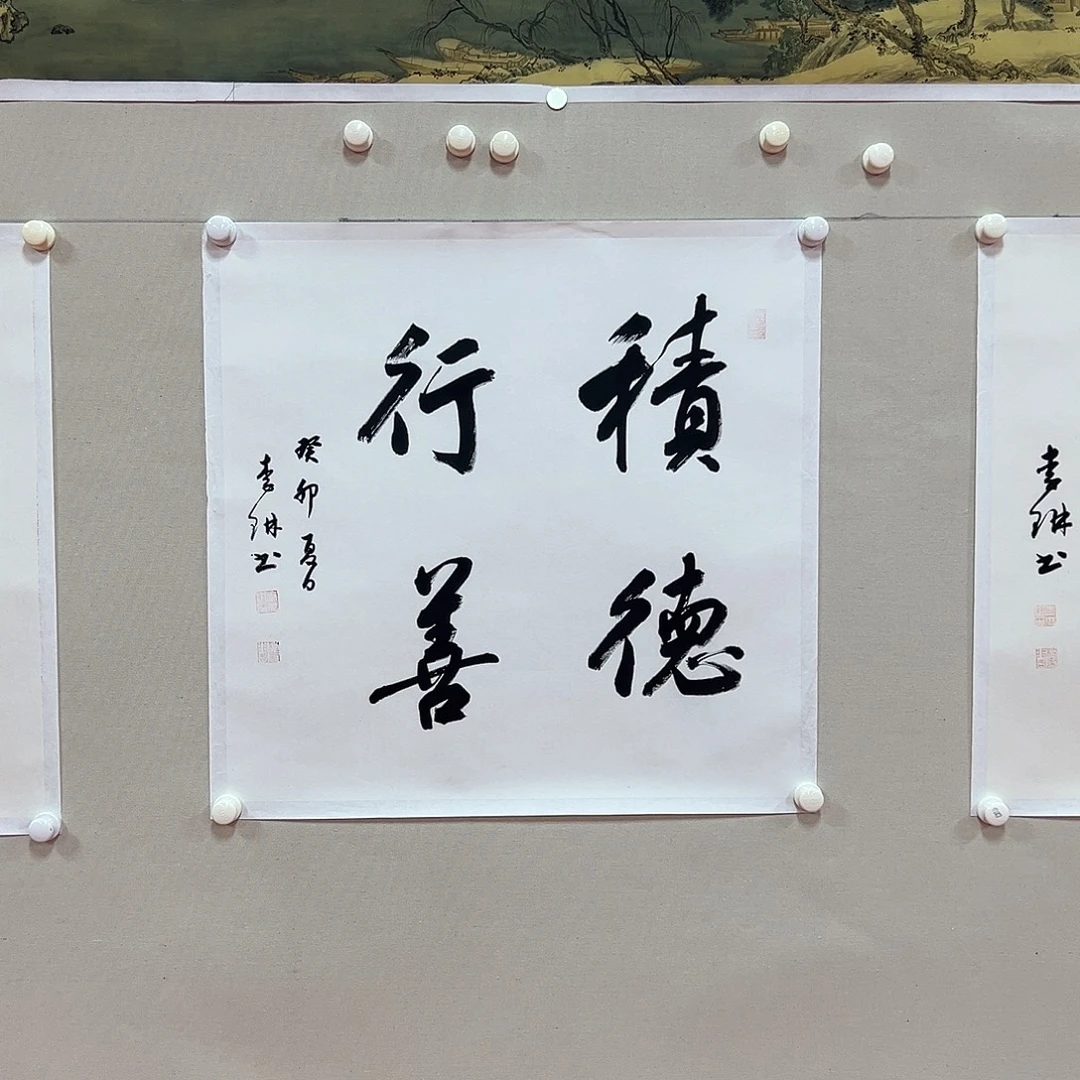 積德
行善
癸卯夏日
李琳书
李琳书